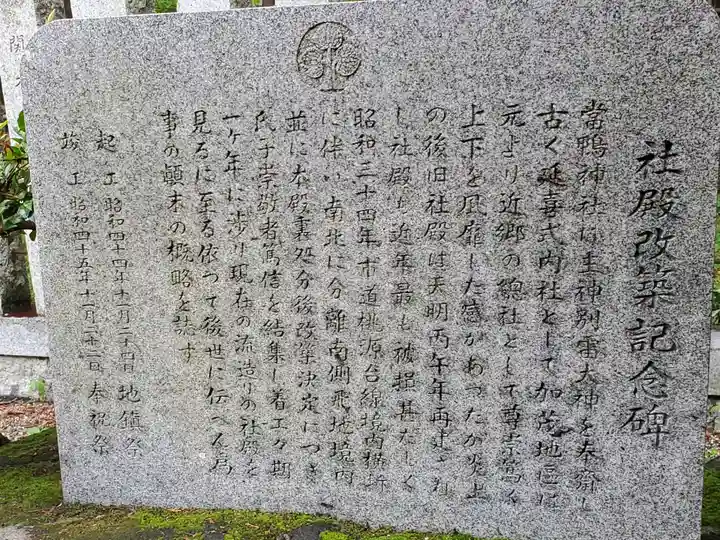 社殿改築記念碑
常鴨神社は主神別雷大神を奉齋し
古く延喜式内社として加茂地區は
元より近郷の總社として尊崇篤く
上下を風靡した感があったが炎上
の後旧社殿は天明丙午年再建
し社殿も近年最も被損甚だしく
昭和三十四年市道桃源台線境内横断
に伴い南北に分離南側飛地境内
並に本殿裏処分後改築決定につき
氏子崇敬者篤信を結集し着工々期
一ヶ年に渉り現在の流造りの社殿を
見るに至る依って後世に伝へる為
事の顛末の概略を誌す
起工 昭和四十四年十一月二十四日 地鎮祭
竣工 昭和四十五年十一月二十二日 奉祝祭
関